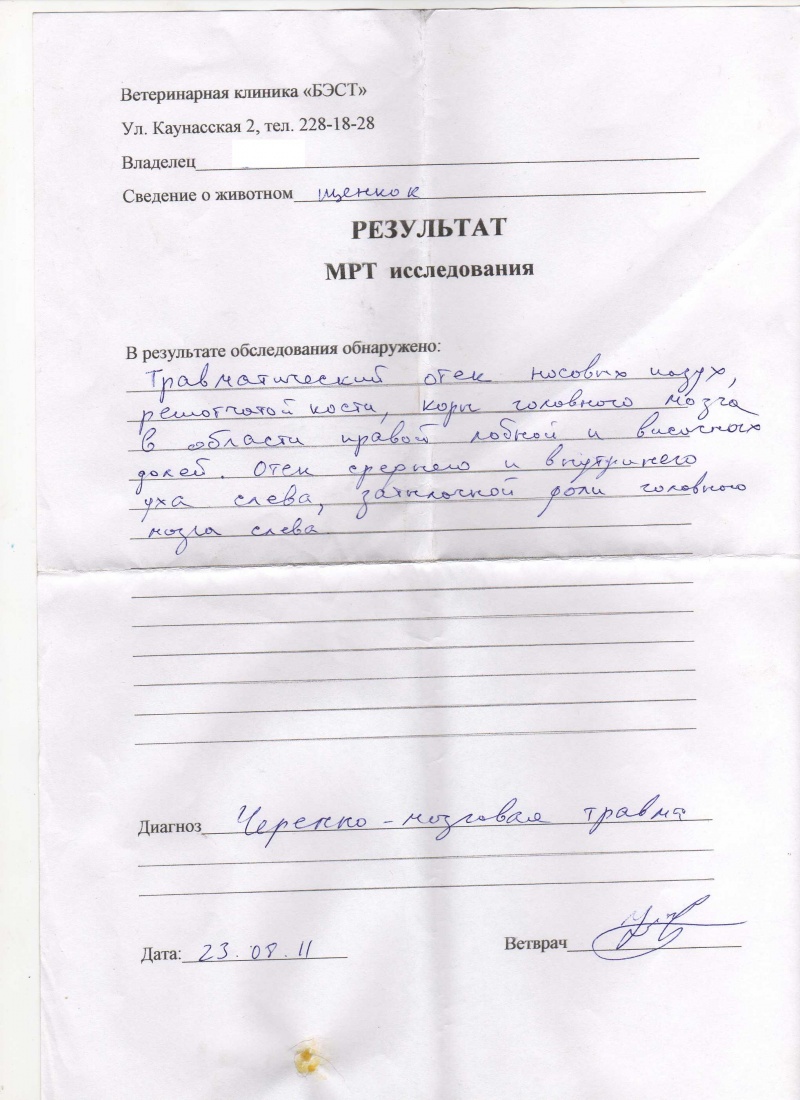 Ветеринарная клиника «БЭСТ»
Ул. Каунасская 2, тел. 228-18-28
Владелец
Сведение о животном щенок
РЕЗУЛЬТАТ
МРТ исследования
В результате обследования обнаружено:
Травматический отек носовых пазух,
решотчатой кости, коры головного мозга
в области правой лобной и височных
долей. Отек среднего и внутринего
уха слева, затылочной доли головного
мозга слева
Диагноз Черепно-мозговая травма
Дата: 23.08.11
Ветврач